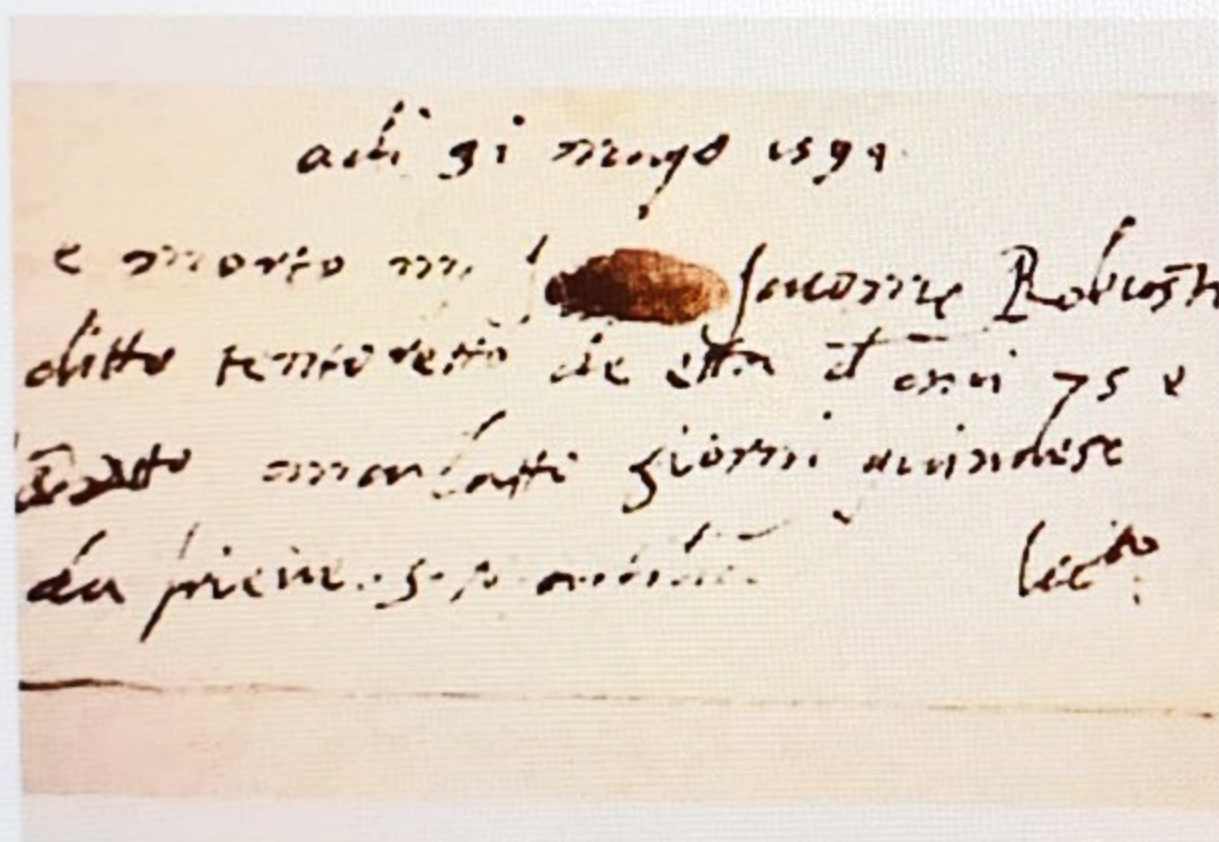 adi 31 mazo 1594
e morto m. Jacomo Robusti
ditto tentoretto de età d anni 75 e
stato mallatto giorni quindese
da freve